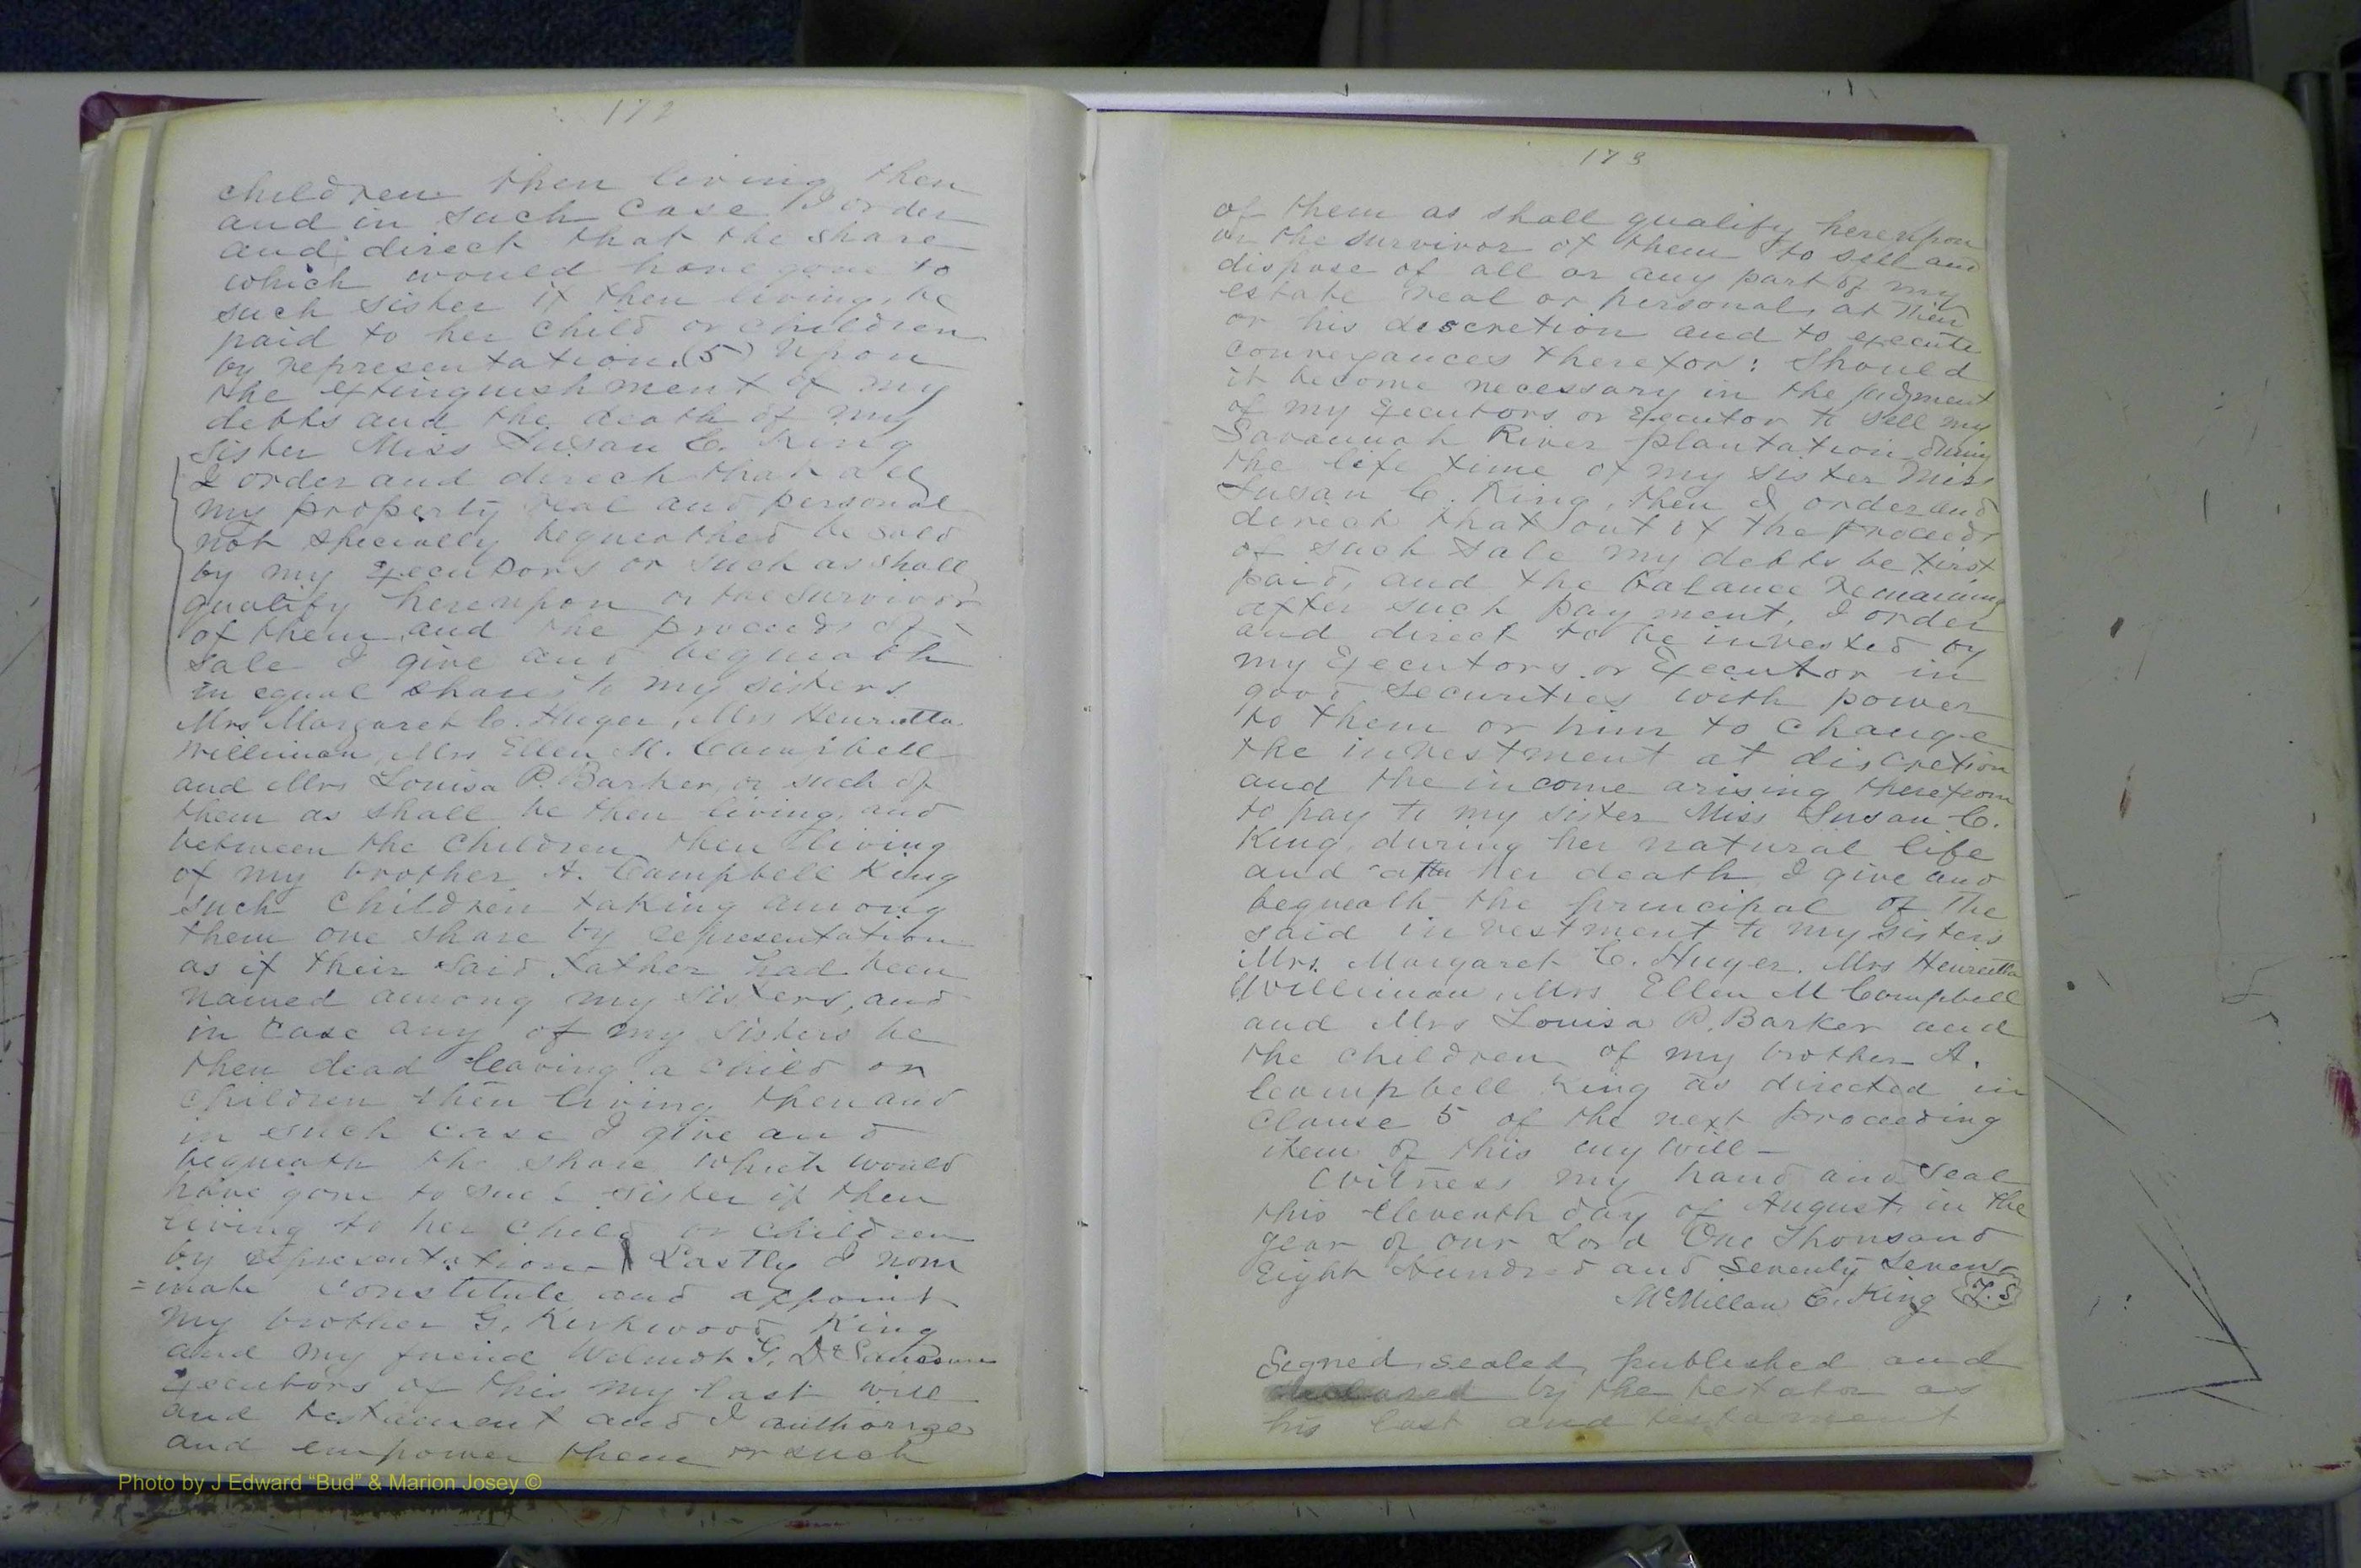 172
children then living then
and in such case I order
and direct that the share
which would have gone to
such sister if then living, be
paid to her child or children
by representation. (5) Upon
the extinguishment of my
debts and the death of my
sister Miss Susan C. King
I order and direct that all
my property real and personal
not specially bequeathed be sold
by my Executors or such as shall
qualify hereupon or the survivor
of them, and the proceeds of
sale I give and bequeath
in equal shares to my sisters
Mrs Margaret C. Huger, Mrs Henrietta
Williman, Mrs Ellen M. Campbell
and Mrs Louisa P. Barker, or such of
them as shall be then living, and
between the children then living
of my brother A. Campbell King
such children taking among
them one share by representation
as if their said father had been
named among my sisters, and
in case any of my sisters be
then dead leaving a child or
children then living then and
in such case I give and
bequeath the share which would
have gone to such sister if then
living to her child or children
by representation - Lastly I nom
=inate constitute and appoint
my brother G. Kirkwood King
and my friend Wilmot G. DeSaussure
Executors of this my last will
and testament and I authorize
and empower them or such
173
of them as shall qualify hereupon
or the survivor of them to sell and
dispose of all or any part of my
estate real or personal, at their
or his descretion and to execute
conveyances therefor: Should
it become necessary in the judgment
of my Executors or Executor to sell my
Savannah River plantation during
the life time of my sister Miss
Susan C. King, then I order and
direct that out of the proceeds
of such sale my debts be first
paid, and the balance remaining
after such payment, I order
and direct to be invested by
my Executors or Executor in
good securities with power
to them or him to change
the investment at discretion
and the income arising therefrom
to pay to my sister Miss Susan C.
King, during her natural life
and after her death I give and
bequeath the principal of the
said investment to my sisters
Mrs. Margaret C. Huger. Mrs Henrietta
Williman, Mrs Ellen M Campbell
and Mrs Louisa P. Barker and
the children of my brother A.
Campbell King as directed in
clause 5 of the next proceeding
item of this my will -
Witness my hand and seal
this eleventh day of August, in the
year of our Lord One Thousand
Eight Hundred and Seventy Seven
McMillan C. King L.S
Signed, sealed, published and
declared by the testator as
his last and testament
Photo by J Edward “Bud” & Marion Josey ©